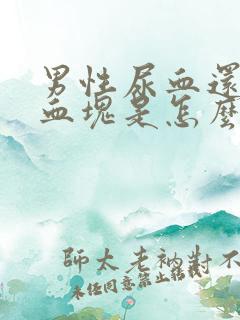 男性尿血還
血塊是怎麼
師太老衲對不
未經同意禁止轉載